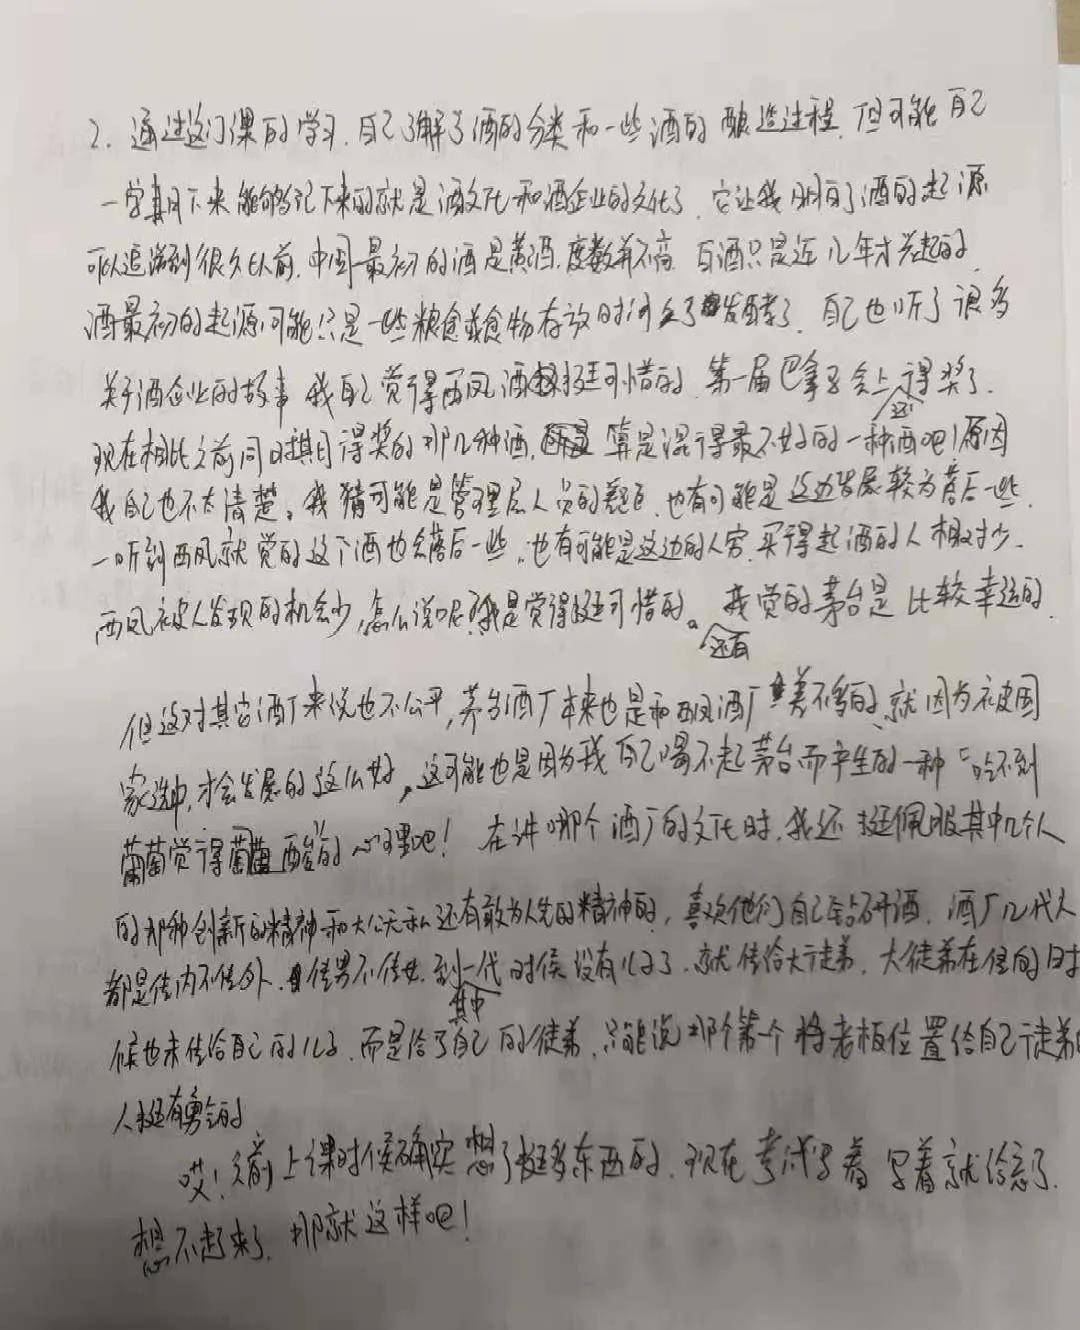 2. 通过这门课的学习,自己了解了酒的分类和一些酒的酿造过程,但可能自己
一学期下来能够记下来的就是酒文化和酒企业的文化了,它让我明白了酒的起源
可以追溯到很久以前,中国最初的酒是黄酒,度数并不高,白酒只是近几年才兴起的,
酒最初的起源可能只是一些粮食或食物存放时间久了发酵了,自己也听了很多
关于酒企业的故事,我自己觉得西凤酒挺可惜的,第一届巴拿马会上还得奖了,
现在相比之前同时期得奖的那几种酒,算是混得最不好的一种酒吧!原因
我自己也不太清楚。我猜可能是管理层人员的,也有可能是这边发展较为落后一些,
一听到西凤就觉的这个酒也会落后一些,也有可能是这边的人穷,买得起酒的人相对少,
西凤被人发现的机会少,怎么说呢?我是觉得挺可惜的。还有我觉的茅台是比较幸运的,
但这对其它酒厂来说也不公平,茅台酒厂本来也是和西凤酒厂差不多的,就因为被国
家选中,才会发展的这么好,这可能也是因为我自己喝不起茅台而产生的一种“吃不到
葡萄觉得葡萄酸”的心理吧!在讲哪个酒厂的文化时,我还挺佩服其中几个人
的那种创新的精神和大公无私还有敢为人先的精神的,喜欢他们自己钻研酒,酒厂几代人
都是传内不传外,传男不传女,到其中一代时候没有儿子了,就传给大徒弟,大徒弟在传的时
候也未传给自己的儿子,而是给了自己的徒弟,只能说那个第一个将老板位置给自己徒弟的
人挺有勇气的
哎!之前上课时候确实想了挺多东西的,现在考试写着写着就给忘了,
想不起来了,那就这样吧!